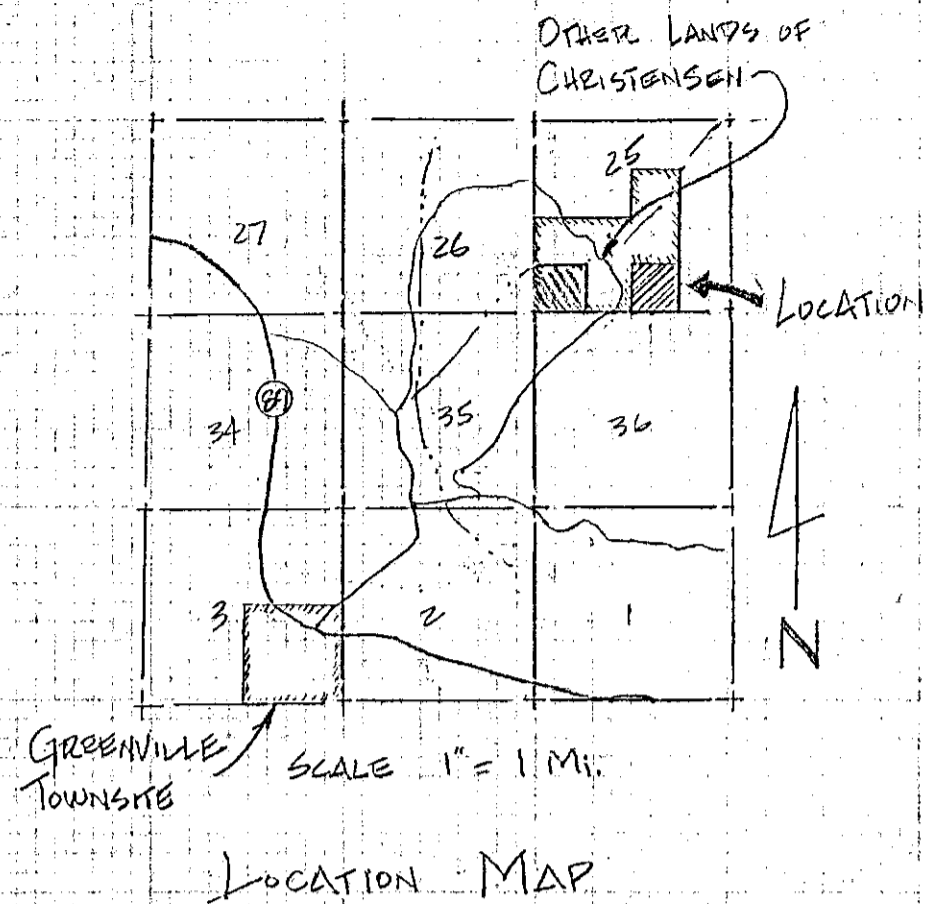 OTHER LANDS OF
CHRISTENSEN
25
27
26
LOCATION
34
35
36
3
2
1
N
GREENVILLE
TOWNSITE
SCALE 1" = 1 MI.
LOCATION MAP